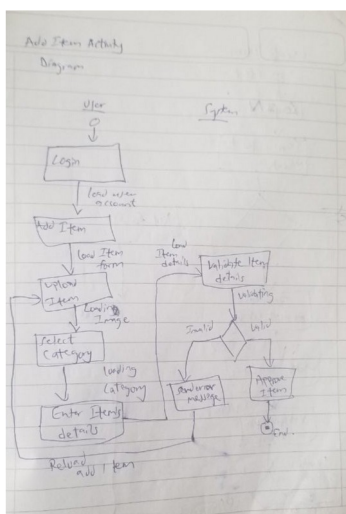 Add Item Activity
Diagram
User
System
Login
load user
account
Add Item
load Item
form
Upload
Item
Loading
Image
Select
Category
Loading
Category
Enter Item's
details
Load
Item
details
Validate Item
details
Validating
Invalid
Valid
Send error
message
Approve
Item
End.
Reload
add item